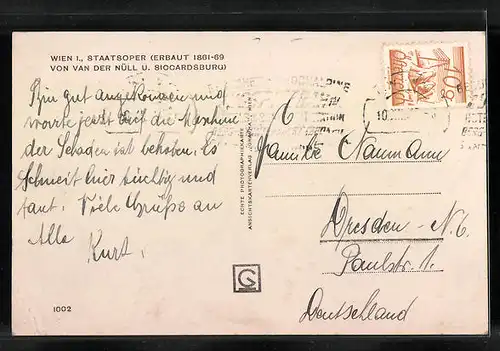 WIEN I., STAATSOPER (ERBAUT 1861-69
VON VAN DER NÜLL U. SICCARDSBURG)
Bin gut angekommen und
warte jetzt auf die Maschine
der Schaden ist behoben. Es
schneit hier tüchtig und
taut. Viele Grüße an
Alle
Kurt.
1002
ECHTE PHOTOGRAPHIE
Familie Naumann
Dresden - N. 6.
Paulstr. 1.
Deutschland
G